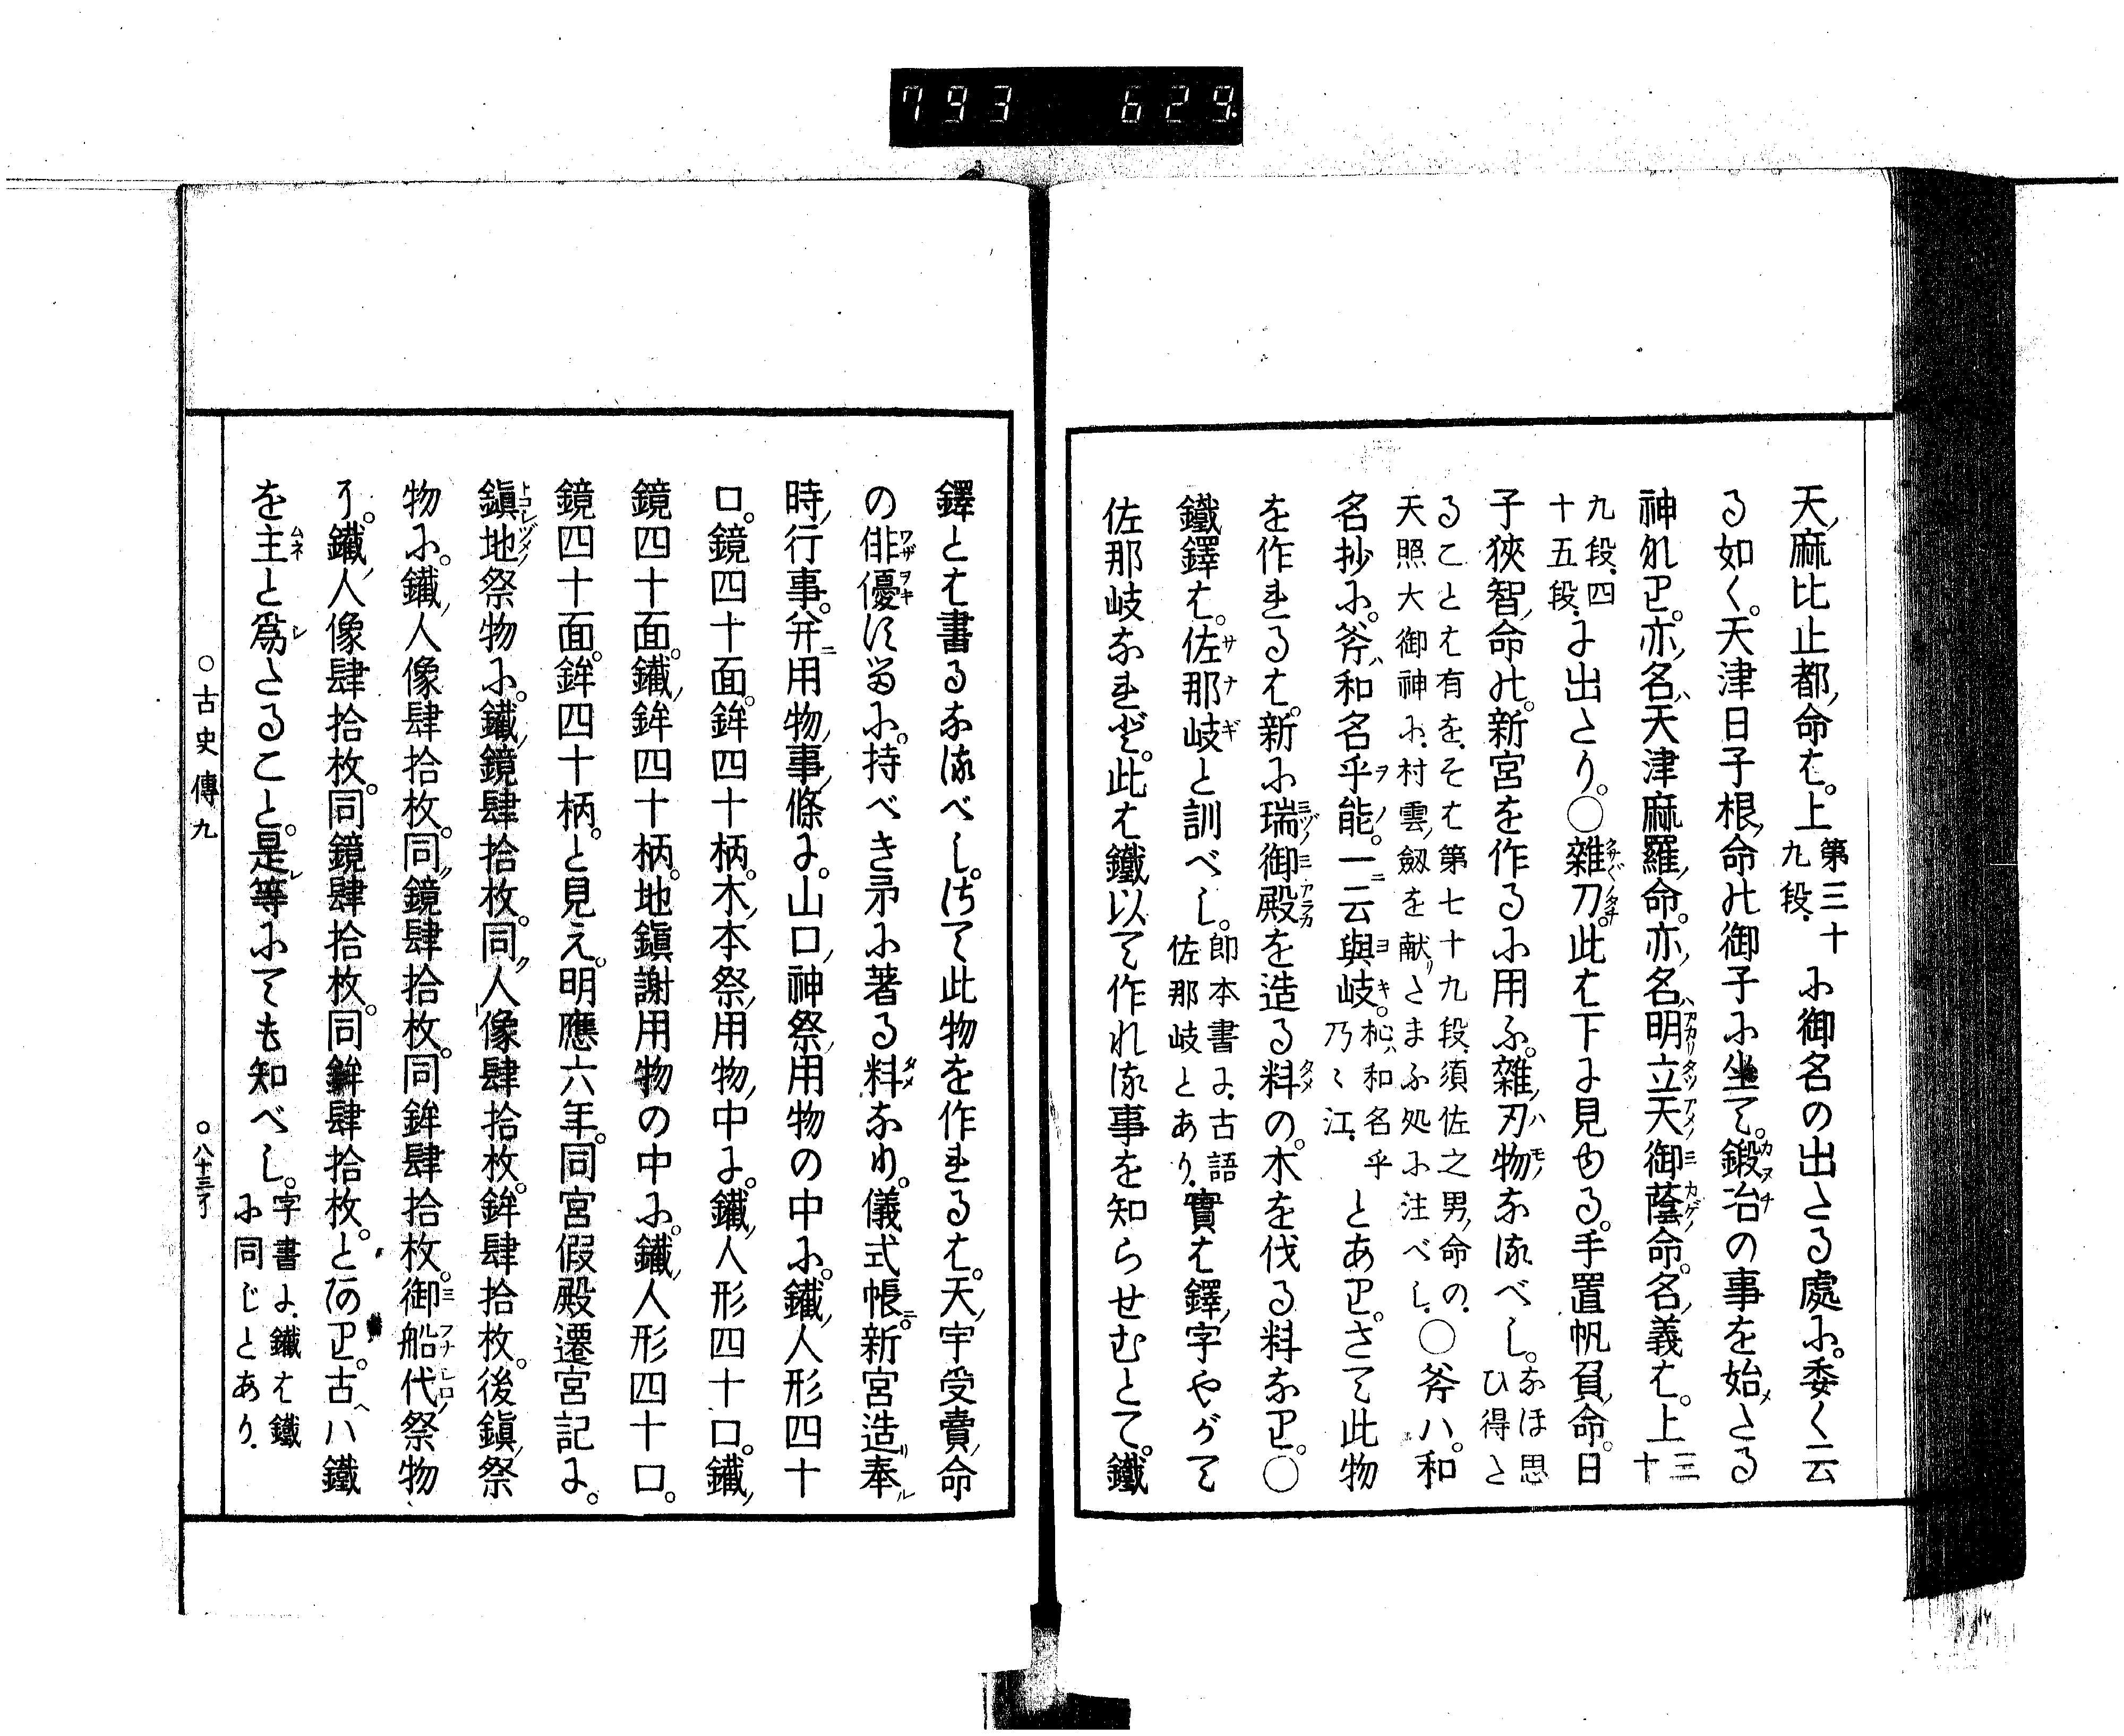 793 629.
天ノ麻比止都ノ命は。上第三十九段。に御名の出たる處に。委く云
る如く。天津日子根ノ命の御子に坐て。鍛冶の事を始メたる
神なり。亦ノ名ハ天津麻羅ノ命。亦ノ名ハ明立天御蔭命。名ノ義は。上三十
九段、四十五段、に出たり。○雜刀。此は下に見ゆる。手置帆負ノ命。日
子狹智ノ命の。新宮を作るに用ふ。雜ノ刃物なるべし。なほ思ひ得た
ることは有を、そは第七十九段、須佐之男ノ命の、天照大御神に、村雲ノ劔を献りたまふ処に注べし、○斧ハ。和
名抄に。斧ハ和名乎能。一ニ云與岐。柁ハ和名乎乃〻江、とあり。さて此物
を作れるは。新に瑞御殿を造る料の。木を伐る料なり。○
鐵鐸は。佐那岐と訓べし。即本書に、古語佐那岐とあり、實は鐸ノ字やがて
佐那岐なれど。此は鐵以て作れる事を知らせむとて。鐵
鐸とは書るなるべし。さて此物を作れるは。天ノ宇受賣ノ命
の俳優に當に。持べき矛に著る料なり。儀式帳ニ。新宮造リ奉ル
時ノ行事。并ニ用物ノ事ノ條に。山口ノ神祭ノ用物の中に。鐵ノ人形四十
口。鏡四十面。鉾四十柄。木ノ本祭ノ用物ノ中に。鐵ノ人形四十口。鐵ノ
鏡四十面。鐵ノ鉾四十柄。地鎭謝用物の中に。鐵ノ人形四十口。
鏡四十面。鉾四十柄。と見え。明應六年。同宮假殿遷宮記に。
鎭地祭物に。鐵ノ鏡肆拾枚。同ク人像肆拾枚。鉾肆拾枚。後鎭ノ祭
物に。鐵ノ人像肆拾枚。同ク鏡肆拾枚。同鉾肆拾枚。御船代祭物
に。鐵ノ人像肆拾枚。同鏡肆拾枚。同鉾肆拾枚。とあり。古ヘハ鐵
を主と爲レたること。是レ等にても知べし。字書に、鐵は鐵に同じとあり、
○古史傳九 ○八十三了